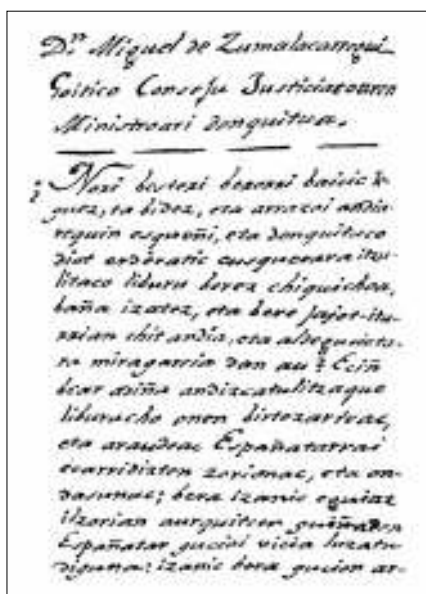 Dn. Miguel de Zumalacarregui
Goitico Conseju Justiciazcoaren
Ministroari donquitua.
Nori besteri berorri baicic
guez, ta bidez, eta arrazoi andia-
requin esqueñi, eta donquituco
diot erderatic eusquerara itzu-
litaco liburu berez chiquichoa,
baña izatez, eta bere jayot-itu-
rrian chit andia, eta
miragarria dan au? Eciñ
bear adiña andizcatu litzaque
liburucho onen birtezarreac,
eta araudeac Españatarrai
ecarridizten zorionac, eta on-
dasunac; bera izanic eguiaz
ilzorian aurquitzen
Españatar gucioi vicia luzatu
diguna: izanic bera gucion ar-